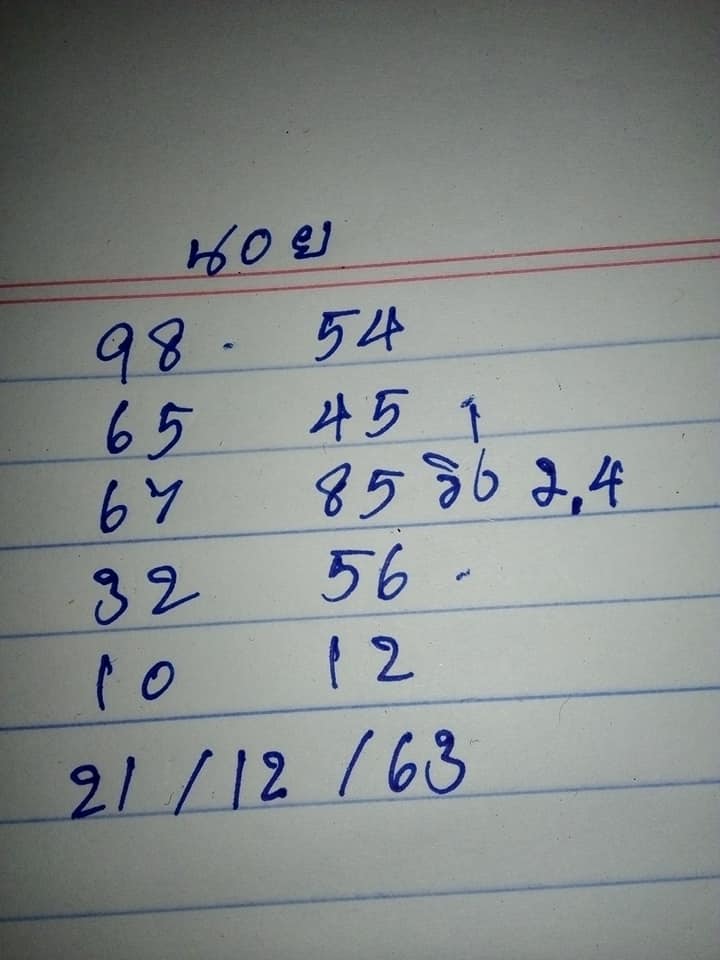 นอย
98. 54
65 45 1
67 85 วิ่ง 2,4
32 56 -
10 12
21/12/63